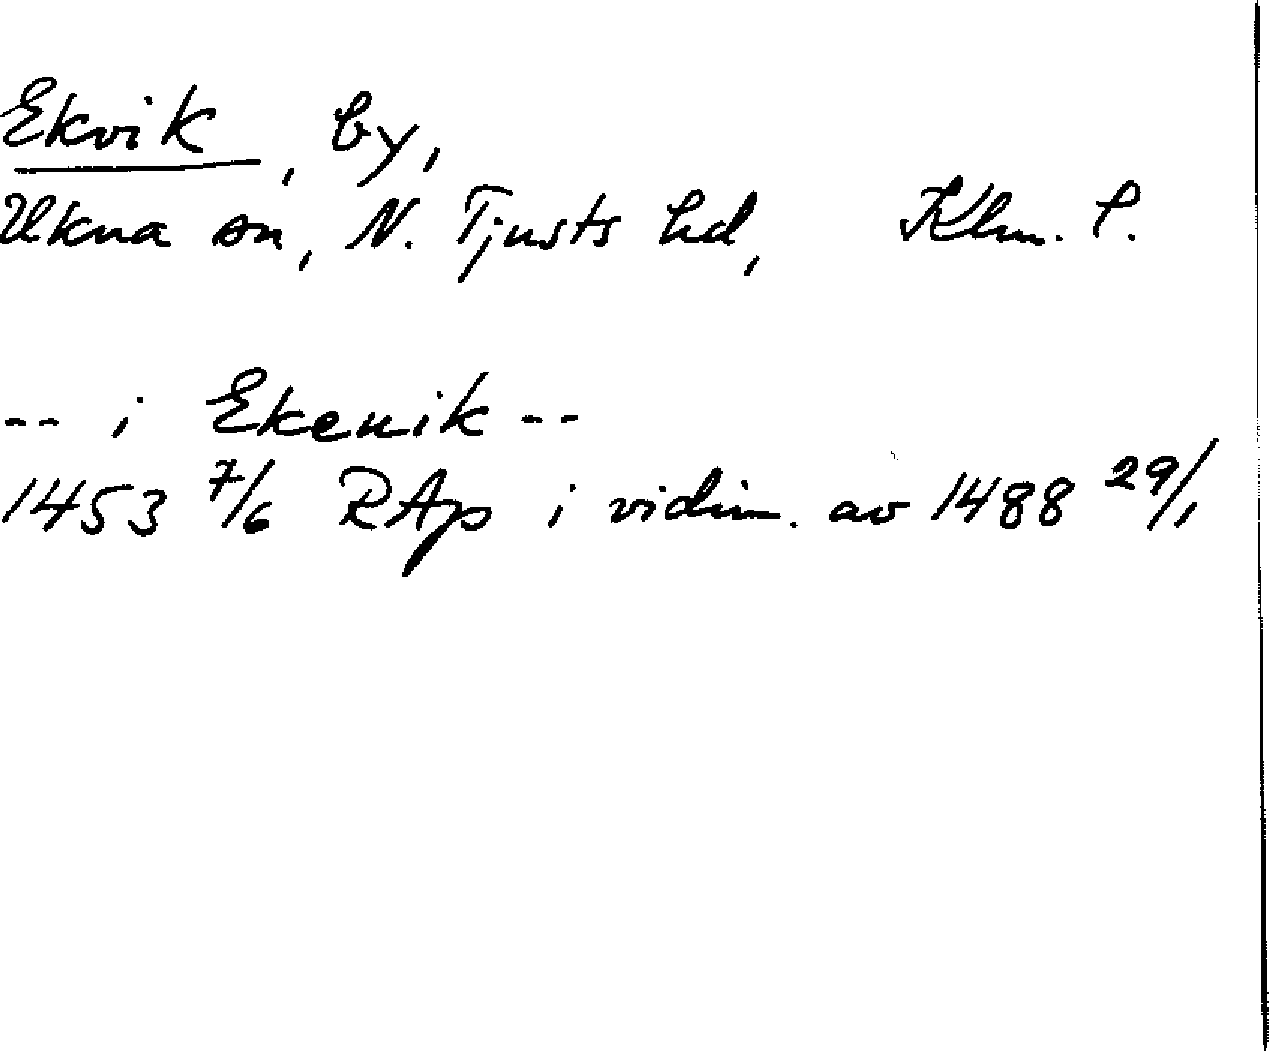 Ekvik, by,
Ukna sn, N. Tjusts hd, Klm. l.
-- i Ekeuik --
1453 7/6 RAp i vidim. av 1488 29/1